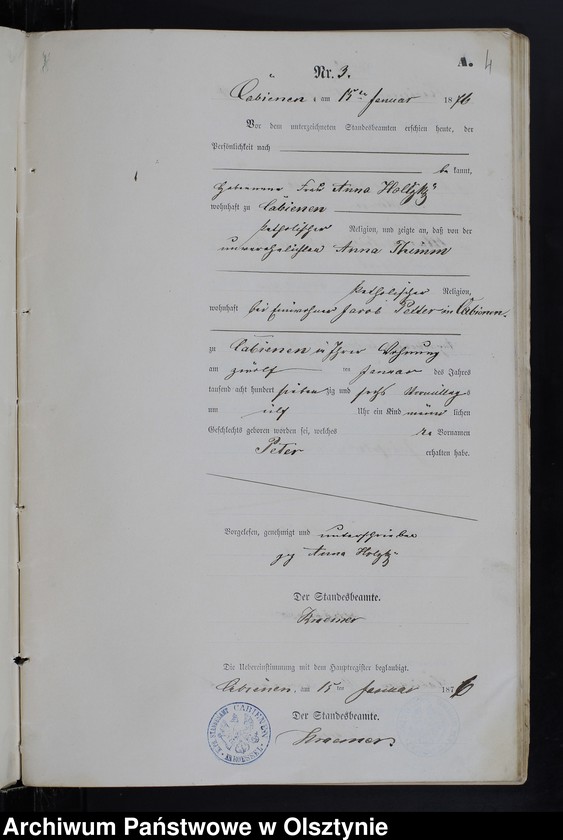 A. 4
Nr. 3.
Cabienen, am 15ten Januar 1876
Vor dem unterzeichneten Standesbeamten erschien heute, der
Persönlichkeit nach
bekannt,
Hebeamme Frau Anna
wohnhaft zu Cabienen
katholischer Religion, und zeigte an, daß von der
unverehelichten Anna Thimm
katholischer Religion,
wohnhaft bei Einwohner Jacob in Cabienen.
zu Cabienen in Ihrer Wohnung
am zwölf ten Januar des Jahres
tausend acht hundert sieben zig und sechs Vormittags
um elf Uhr ein Kind männ lichen
Geschlechts geboren worden sei, welches Vornamen
Peter erhalten habe.
Vorgelesen, genehmigt und unterschrieben
gez Anna
Der Standesbeamte.
Kraemer
Die Uebereinstimmung mit dem Hauptregister beglaubigt.
Cabienen, am 15 ten Januar 1876
Der Standesbeamte.
Kraemer
CABIENEN
Archiwum Państwowe w Olsztynie